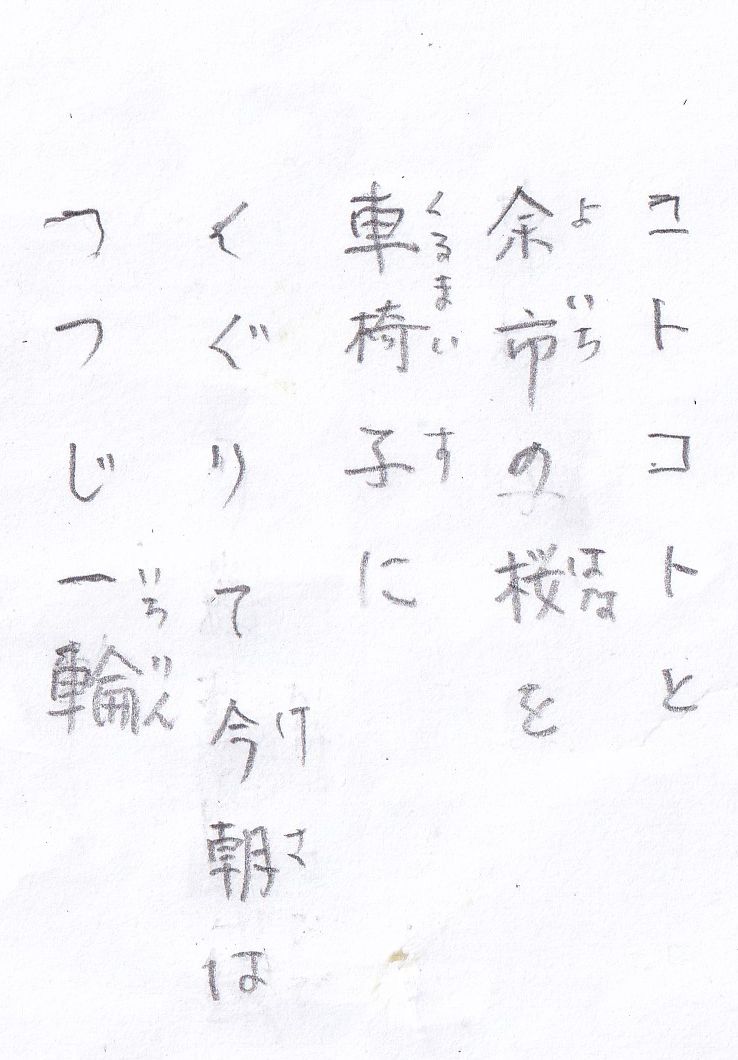 コトコトと
余市の桜を
車椅子に
くぐりて今朝は
つつじ一輪
よいち
はな
くるまいす
けさ
いちりん